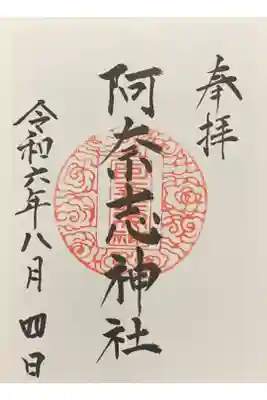 奉拝
阿奈志神社
令和六年八月四日